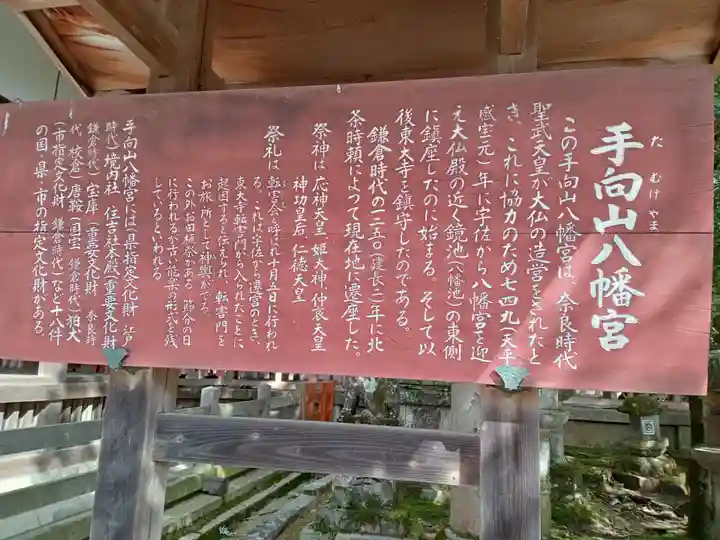 た むけ やま
手向山八幡宮
この手向山八幡宮は、奈良時代
聖武天皇が大仏の造営をされたと
き、これに協力のため七四九(天平
感宝元)年に宇佐から八幡宮を迎
え大仏殿の近く鏡池(八幡池)の東側
に鎮座したのに始まる。そして以
後東大寺を鎮守したのである。
鎌倉時代の一二五〇(建長二)年に北
条時頼によって現在地に遷座した。
祭神は、応神天皇 姫大神 仲哀天皇
神功皇后 仁徳天皇
祭礼は転害会と呼ばれ十月五日に行われ
る。これは宇佐から遷宮のとき、
東大寺転害門から入られたことに
起因すると伝えられ、転害門を
お旅所として神輿がでる。
この外お田植祭がある。節分の日
に行われるが古い能楽の形式を残
しているといわれる
手向山八幡宮には(県指定文化財 江戸
時代)境内社 住吉社本殿(重要文化財
鎌倉時代)宝庫(重要文化財 奈良時
代 校倉)唐鞍(国宝 鎌倉時代)狛犬
(市指定文化財 鎌倉時代)など十八件
の国・県・市の指定文化財がある。